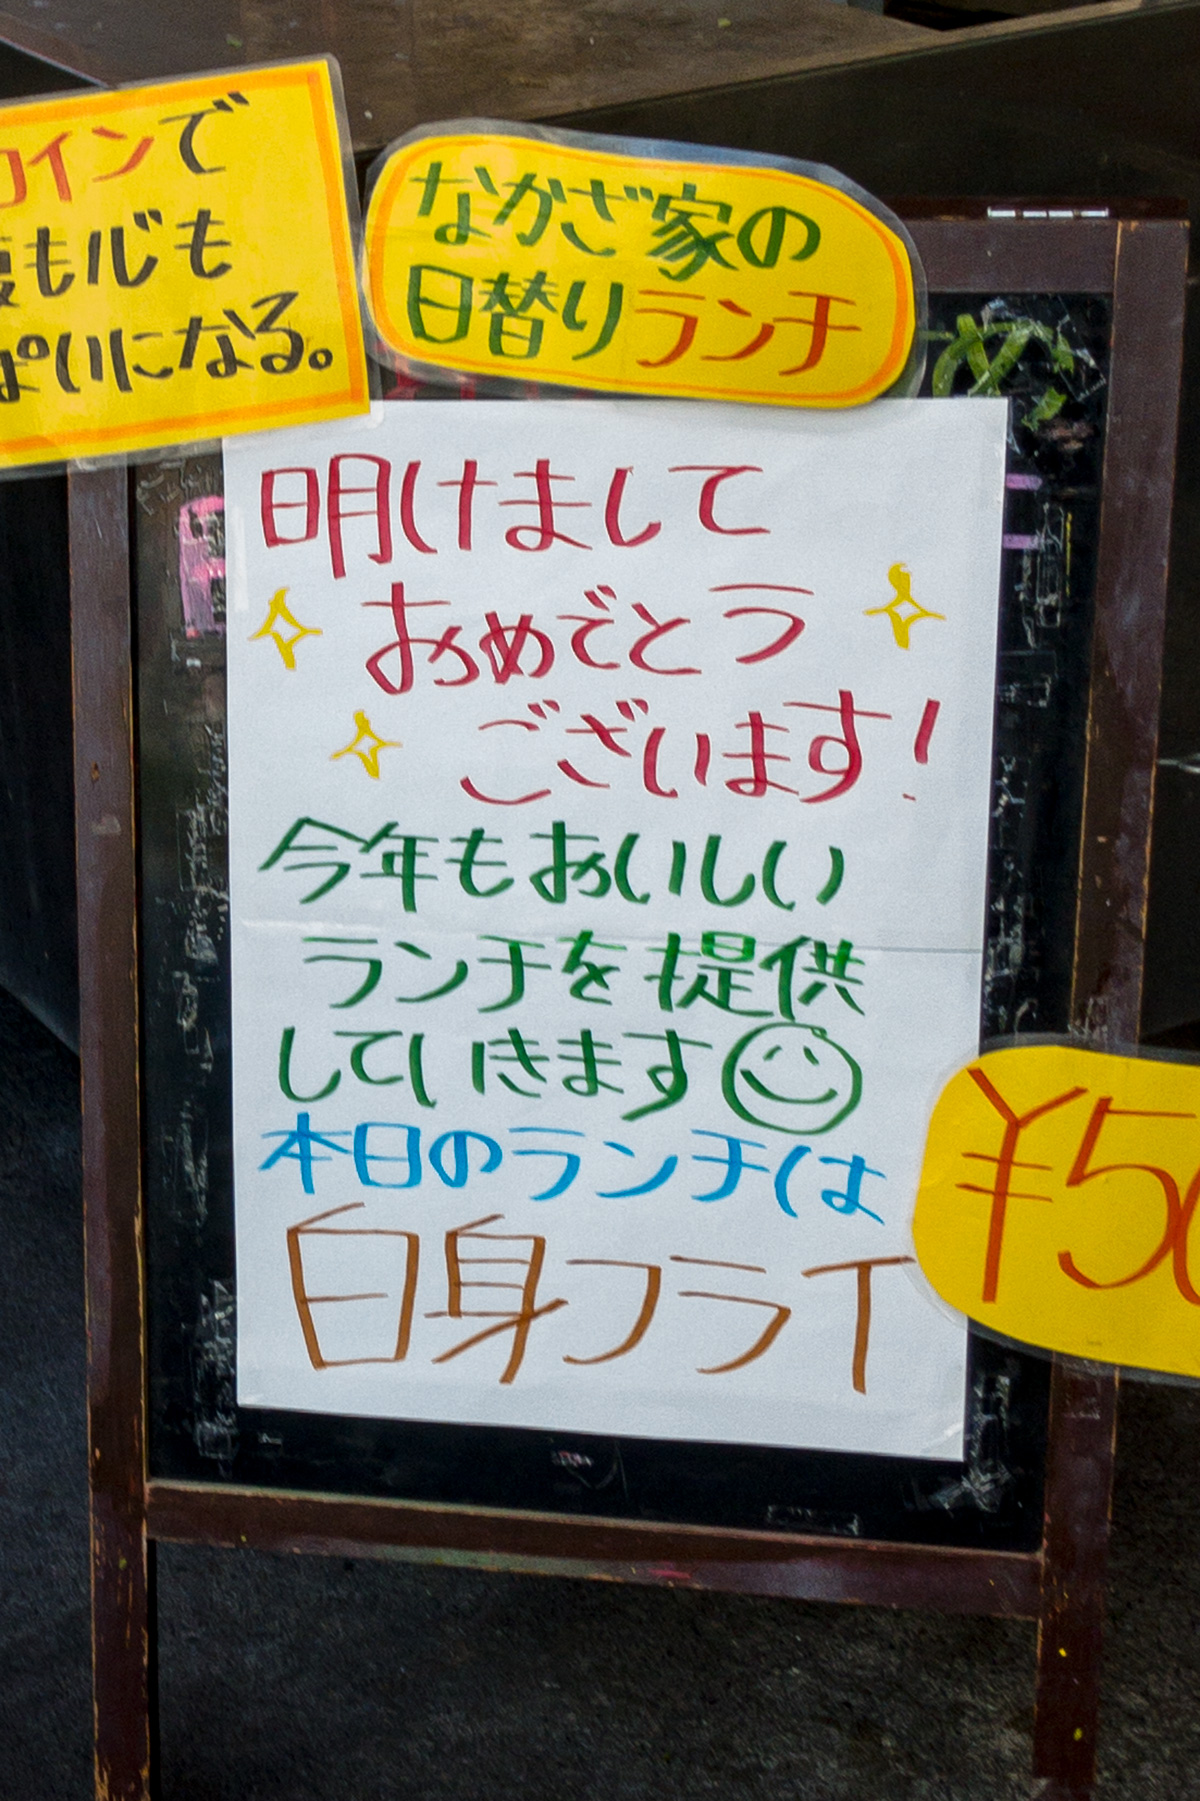 コインで
腹も心も
ぱいになる。
なかざ家の
日替りランチ
明けまして
おめでとう
ございます!
今年もおいしい
ランチを提供
していきます
本日のランチは
白身フライ
¥50